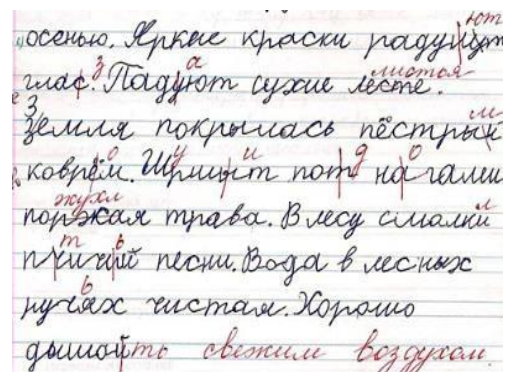 осенью. Яркие краски радуют
глас. Падуют сухие лесте.
Земля покрылась пёстрын
ковром. Шрмит пот ногами
поржкая трава. В лесу смолкли
птичьи песни. Вода в лесных
ручьях чистая. Хорошо
дышать свежим воздухом.